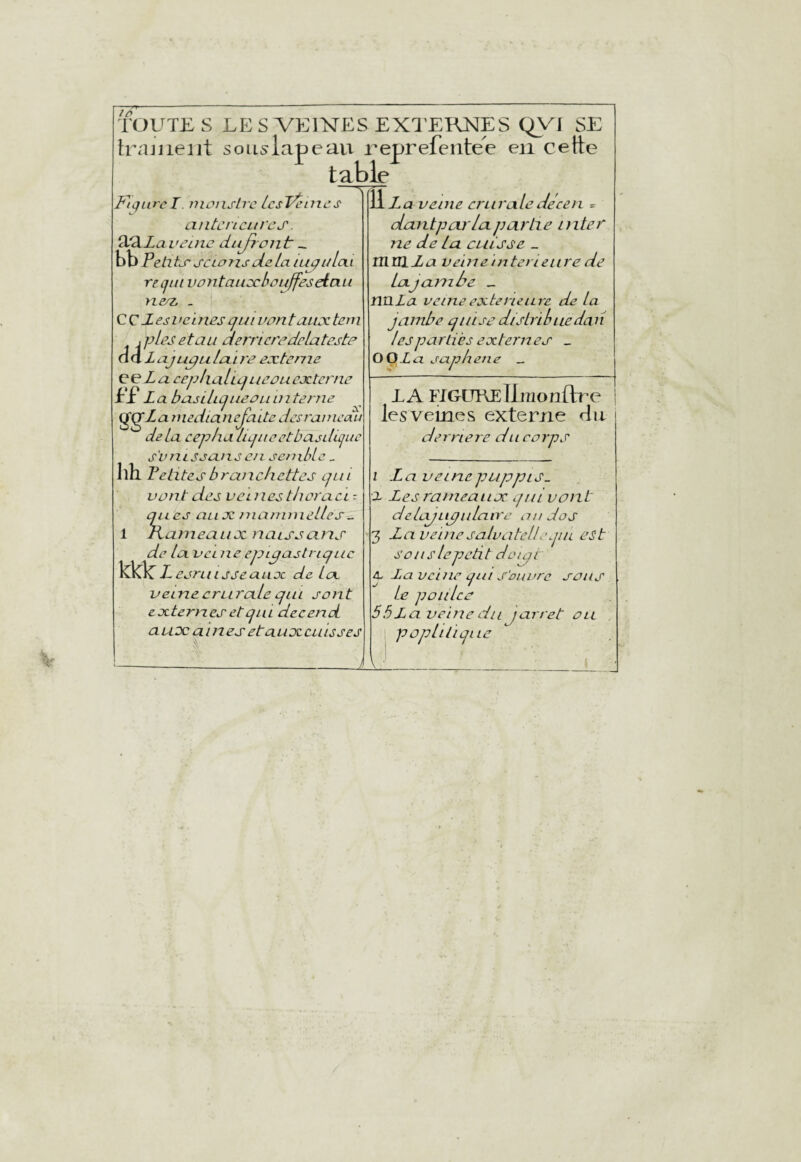 16
TOUTES LES VEINES EXTERNES QVI SE
trainent sous lapeau representée en cette
table
Figure I. monstre les Veines
anterieures.
aa La veine du front _
bb Petits scions de la iugulai
re qui vont aux bouffes et au
nez _
CC Les veines qui vont aux tem
ples et au derriere de la teste
dd La jugulaire externe
ee La cephalique ou externe
ff La basilique ou interne
gg La mediane faite des rameau x
de la cephalique et basilique
s'unissans en semble _
hh Petites branchettes qui
vont des veines thoraci =
ques aux mammelles _
1 Rameaux naissans
de la veine epigastrique
kkk Les ruisseaux de la
veine crurale qui sont
externes et qui decend
aux aines et aux cuisses
ll La veine crurale décen =
dant par la partie inter
ne de la cuisse _
mm La veine interieure de
la jambe _
nn La veine exterieure de la
jambe qui se distribue dan
les parties externes _
OO La saphene _
LA FIGURE II monstre
les veines externe du
derriere du corps
1 La veine puppis _
2 Les rameaux qui vont
de la jugulaire au dos
3 La veine salvatelle qui est
sous le petit doigt
4 La veine qui s'ouvre sous
le poulce
55 La veine du jarret ou
poplitique